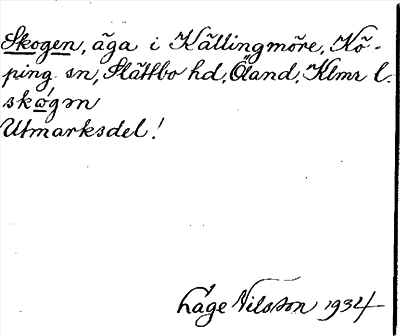 Skogen, äga i Källingmöre, Kö-
ping sn, Slättbo hd, Öland, Klmr l.
skógən
Utmarksdel!
Låge Nilsson 1934